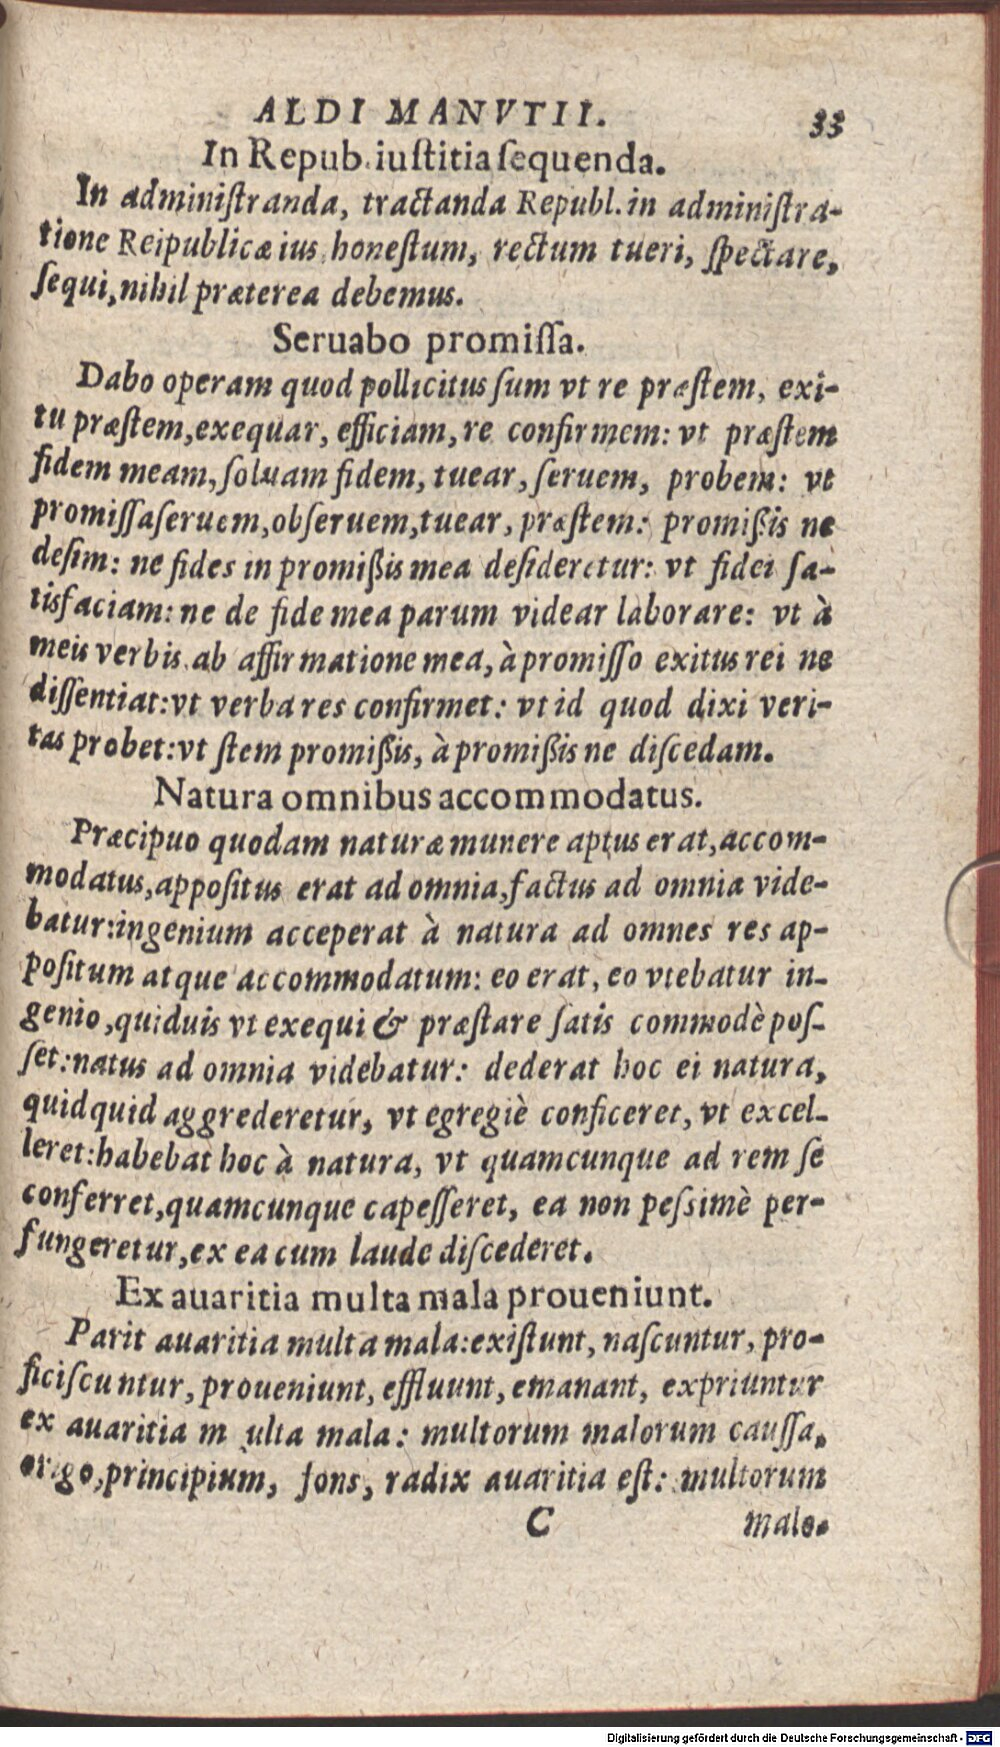 ALDI MANVTII. 33
In Repub. iustitia sequenda.
In administranda, tractanda Republ. in administra-
tione Reipublicæ ius, honestum, rectum tueri, spectare,
sequi, nihil præterea debemus.
Seruabo promissa.
Dabo operam quod pollicitus sum vt re præstem, exi-
tu præstem, exequar, efficiam, re confirmem: vt præstem
fidem meam, soluam fidem, tuear, seruem, probem: vt
promissa seruem, obseruem, tuear, præstem: promißis ne
desim: ne fides in promißis mea desideretur: vt fidei sa-
tisfaciam: ne de fide mea parum videar laborare: vt à
meis verbis, ab affirmatione mea, à promisso exitus rei ne
dissentiat: vt verba res confirmet: vt id quod dixi veri-
tas probet: vt stem promißis, à promißis ne discedam.
Natura omnibus accommodatus.
Præcipuo quodam naturæ munere aptus erat, accom-
modatus, appositus erat ad omnia, factus ad omnia vide-
batur: ingenium acceperat à natura ad omnes res ap-
positum atque accommodatum: eo erat, eo vtebatur in-
genio, quiduis vt exequi & præstare satis commodè pos-
set: natus ad omnia videbatur: dederat hoc ei natura,
quidquid aggrederetur, vt egregiè conficeret, vt excel-
leret: habebat hoc à natura, vt quamcunque ad rem se
conferret, quamcunque capesseret, ea non pessimè per-
fungeretur, ex ea cum laude discederet.
Ex auaritia multa mala proueniunt.
Parit auaritia multa mala: existunt, nascuntur, pro-
ficiscuntur, proueniunt, effluunt, emanant, expriuntur
ex auaritia m ulta mala: multorum malorum caussa,
origo, principium, fons, radix auaritia est: multorum
C malo-
Digitalisierung gefördert durch die Deutsche Forschungsgemeinschaft - DFG